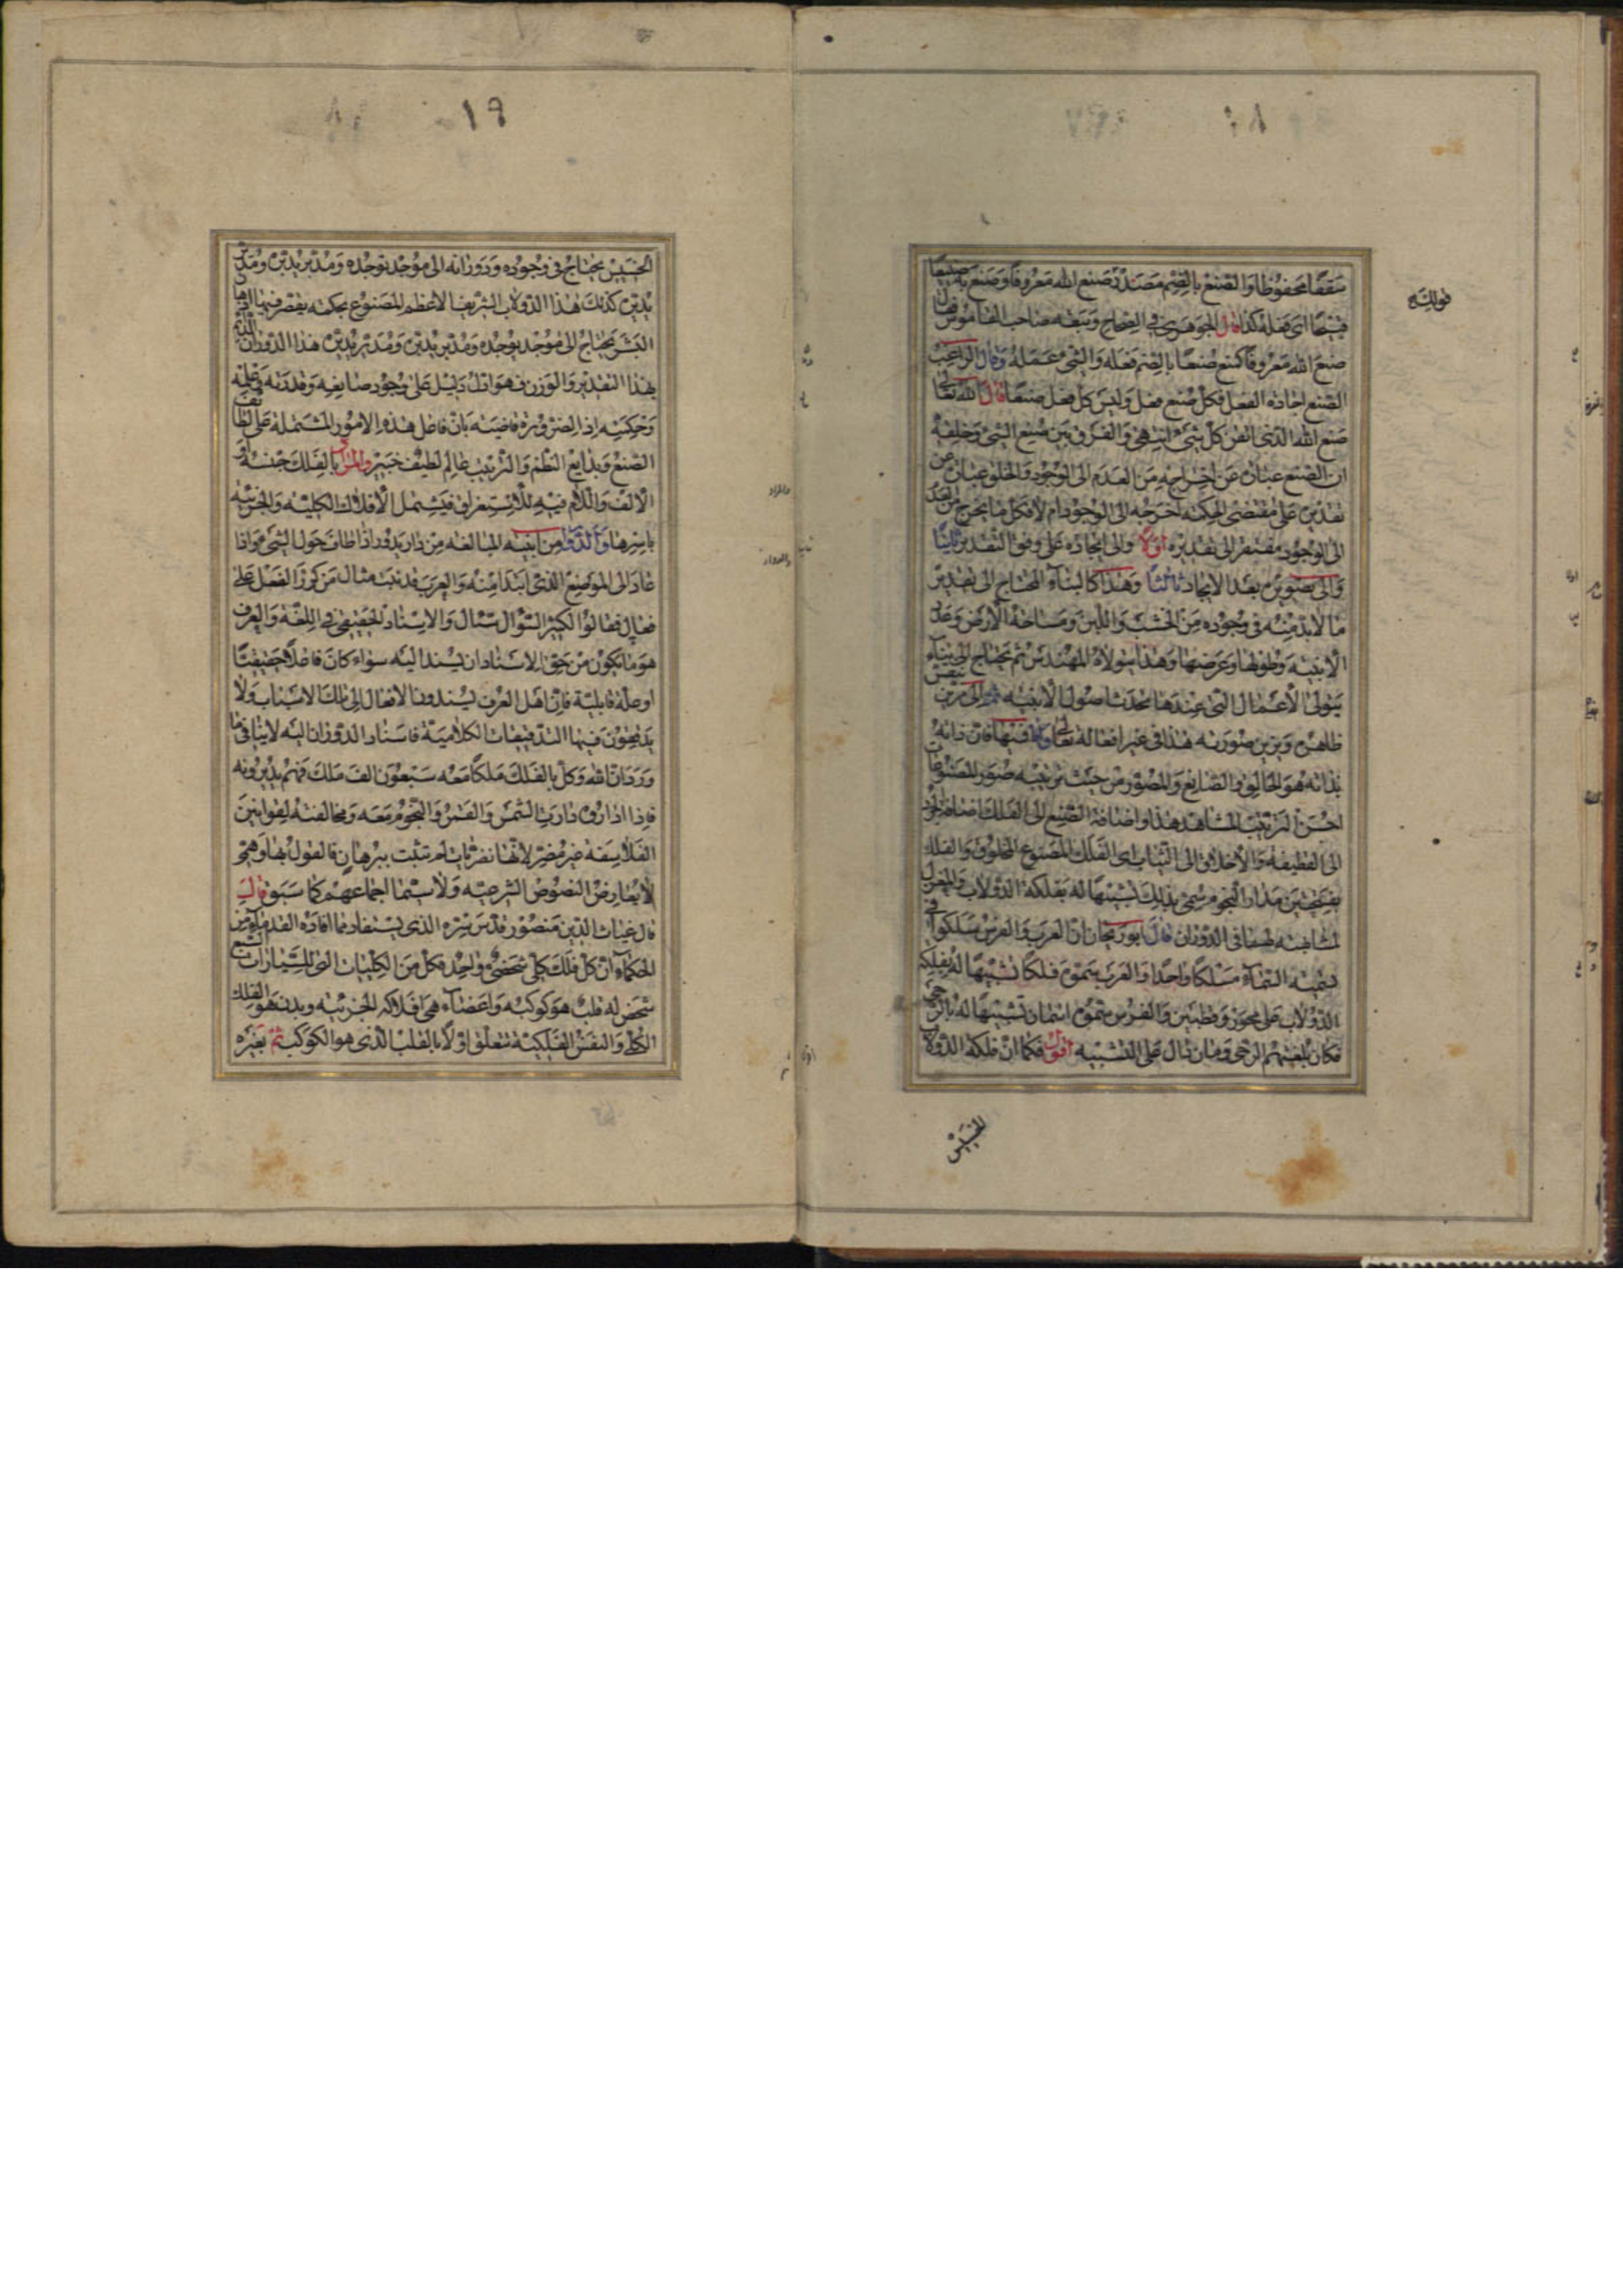 ١٨
سقفا محفوظا والصنع بالضم مصدر صنع الله معروفا وصنع به صنيعا
قبيحا اى فعله كذا قال الجوهرى فى الصحاح وتبعه صاحب القاموس قال
صنع الله معروفا كمنع صنعا بالضم فعله والشئ عمله وقال الراغب
الصنع اجادة الفعل فكل صنع فعل وليس كل فعل صنعا قال الله تعالى
صنع الله الذى اتقن كل شئ انتهى والفرق بين صنع الشئ وخلقه
ان الصنع عبارة عن اخراجه من العدم الى الوجود والخلق عبارة عن
تقديره على مقتضى الحكمة اخرجه الى الوجود ام لا فكل ما يخرج من العدم
الى الوجود مفتقر الى تقديره اولا والى ايجاده على وفق التقدير ثانيا
والى تصويره بعد الايجاد ثالثا وهذا كالبناء المحتاج الى تقدير
ما لابد منه فى وجوده من الخشب واللبن ومساحة الارض وعدد
الابنية وطولها وعرضها وهذا يتولاه المهندس ثم يحتاج الى بناء
يتولى الاعمال التى عندها تحدث اصول الابنية ثم الى مزين ينقش
ظاهره ويزين صورته هذا فى غير افعاله تعالى واما فيها فان ذاته
بذاته هو الخالق والصانع والمصور من حيث ترتيبه صور المصنوعات
احسن الترتيب المشاهد هذا واضافة الصنع الى الفلك اضافة الجرد
الى القطيفة والاخلاق الى الثياب اى الفلك المصنوع المخلوق والفلك
بفتحتين مدار النجوم سمى بذلك تشبيها له بفلكة الدولاب والمغزل
لمشابهته لهما فى الدوران قال ابو ريحان ان العرب والفرس سلكوا فى
تسمية السماء مسلكا واحدا والعرب تسموه فلكا تشبيها له بفلكة
الدولاب على محور وقطبين والفرس سموه اسمان تشبيها له بالرحى
فكان بلغتهم الرحى ومان دال على التشبيه اقول فكما ان فلكة الدولاب
الخسيس
قوله
١٩
الخسيس يحتاج فى وجوده ودورانه الى موجد يوجده ومدبر يدبره ومدير
يديره كذلك هذا الدولاب الشريف الاعظم المصنوع بحكمة يقصر فيها
البشر يحتاج الى موجد يوجده ومدبر يدبره ومدير يديره هذا الدوران الدائم
بهذا التقدير والوزن فهو ادل دليل على وجود صانعه وقدرته وعلمه
وحكمته اذ الضرورة قاضية بان فاعل هذه الامور المشتملة على لطائف
الصنع وبدايع النظم والترتيب عالم لطيف خبير والمراد بالفلك جنسه او
الالف واللام فيه للاستغراق فيشمل الافلاك الكلية والجزئية
باسرها والدوار من ابنية المبالغة من دار يدور اذا طاف حول الشئ واذا
عاد الى الموضع الذى ابتدا منه والعرب قد نبت مثال من كرر الفعل على
فعال فقالوا لكثير السؤال سئال والاسناد الحقيقى فى اللغة والعرف
هو ما يكون من حق الاسناد ان يسند اليه سواء كان فاعلا حقيقيا
او علة قابلية فان اهل العرف يسندون الافعال الى تلك الاسباب ولا
يدققون فيها التدقيقات الكلامية فاسناد الدوران اليه لا ينافى ما
ورد ان الله وكل بالفلك ملكا معه سبعون الف ملك فهم يديرونه
فاذا اداروه دارت الشمس والقمر والنجوم معه ومخالفته لقوانين
الفلاسفة غير مضر لانها نفريات لم تثبت ببرهان فالقول بها وهمى
لا يعارض النصوص الشرعية ولا سيما اجماعهم كما سبق قال
قال غياث الدين منصور قدس سره الذى يستفاد مما افاده القدماء من
الحكماء ان كل فلك كلى شخصى واحد فكل من الكليات التى للسيارات السبع
شخص له قلب هو كوكبه واعضاء هى افلاكه الجزئية وبدن هو الفلك
الكلى والنفس الفلكية تتعلق اولا بالقلب الذى هو الكوكب ثم بغيره